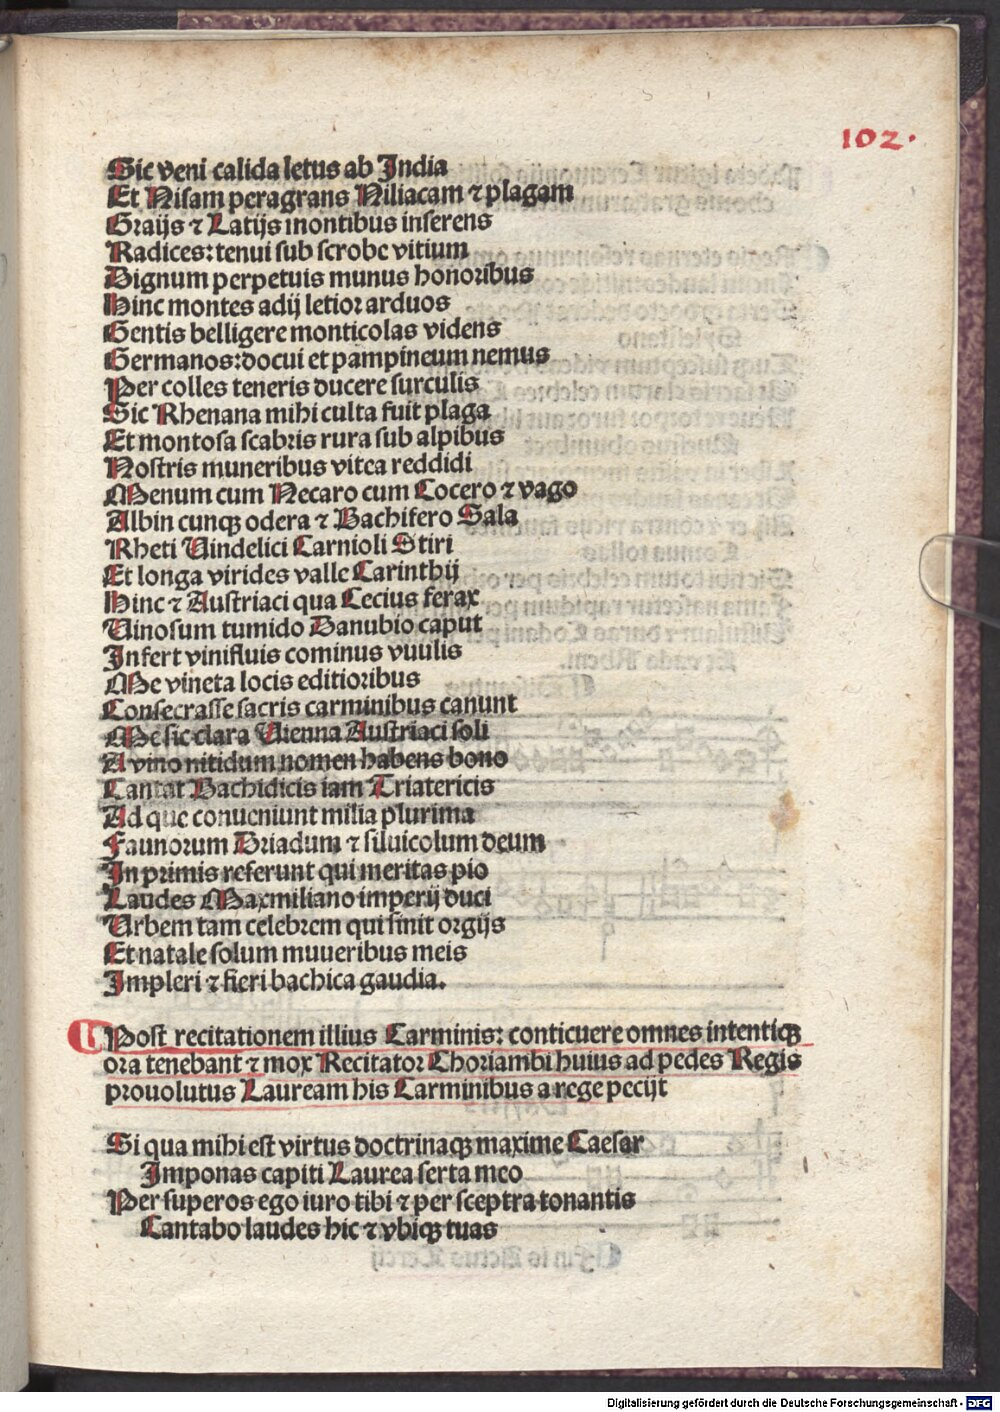 102.
Sic veni calida letus ab India
Et Nisam peragrans Niliacam ⁊ plagam
Graijs ⁊ Latijs montibus inserens
Radices: tenui sub scrobe vitium
Dignum perpetuis munus honoribus
Hinc montes adij letior arduos
Gentis belligere monticolas videns
Germanos: docui et pampineum nemus
Per colles teneris ducere surculis
Sic Rhenana mihi culta fuit plaga
Et montosa scabris rura sub alpibus
Nostris muneribus vitea reddidi
Menum cum Necaro cum Cocero ⁊ vago
Albin cunqꝫ odera ⁊ Bachifero Sala
Rheti Uindelici Carnioli Stiri
Et longa virides valle Carinthij
Hinc ⁊ Austriaci qua Cecius ferax
Uinosum tumido Danubio caput
Infert vinifluis cominus vuulis
Me vineta locis editioribus
Consecrasse sacris carminibus canunt
Me sic clara Uienna Austriaci soli
A vino nitidum nomen habens bono
Cantat Bachidicis iam Triatericis
Ad que conueniunt milia plurima
Faunorum Driadum ⁊ siluicolum deum
In primis referunt qui meritas pio
Laudes Maxmiliano imperij duci
Urbem tam celebrem qui sinit orgijs
Et natale solum muueribus meis
Impleri ⁊ fieri bachica gaudia.
Post recitationem illius Carminis: conticuere omnes intentiqꝫ
ora tenebant ⁊ mox Recitator Choriambi huius ad pedes Regis
prouolutus Lauream his Carminibus a rege pecijt
Si qua mihi est virtus doctrinaqꝫ maxime Caesar
Imponas capiti Laurea serta meo
Per superos ego iuro tibi ⁊ per sceptra tonantis
Cantabo laudes hic ⁊ vbiqꝫ tuas
Digitalisierung gefördert durch die Deutsche Forschungsgemeinschaft - DFG